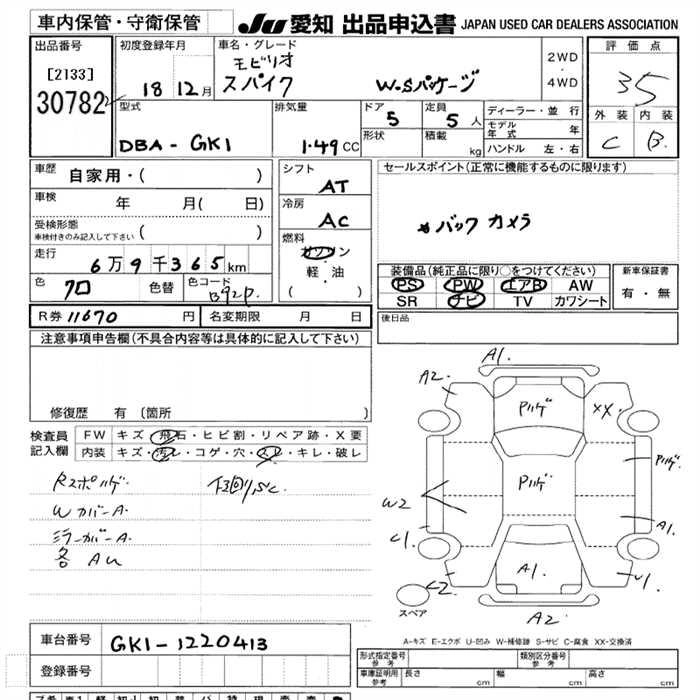 車内保管・守衛保管
JU 愛知 出品申込書 JAPAN USED CAR DEALERS ASSOCIATION
出品番号
[2133]
30782
初度登録年月
18 12月
車名・グレード
モビリオ
スパイク W-Sパッケージ
2WD
・
4WD
評価点
35
外装 内装
C B
型式
DBA-GK1
排気量
1.49 CC
ドア
5
定員
5人
形状
積載
kg
ディーラー・並行
モデル年式 年
ハンドル 左・右
車歴
自家用・( )
車検
年 月( 日)
受検形態
車検付きのみ記入して下さい ( )
走行
6万9千365km
色
クロ
色替
色コード
B92P.
シフト
AT
冷房
AC
燃料
ガソリン
・
軽・油
( )
セールスポイント(正常に機能するものに限ります)
バック カメラ
装備品(純正品に限り○をつけてください)
PS PW エアB AW
SR ナビ TV カワシート
新車保証書
有・無
R券 11670 円
名変期限 月 日
後日品
注意事項申告欄(不具合内容等は具体的に記入して下さい)
修復歴 有 〔箇所 〕
検査員
記入欄
FW キズ・飛石・ヒビ割・リペア跡・X要
内装 キズ・汚レ・コゲ・穴・スレ・キレ・破レ
Rスポハゲ
WカバーA
ミラーカバーA.
各 AU
A1.
A2.
Pハゲ
XX.
Pハゲ
Pハゲ
W2
A1.
C1.
C2
A1.
U1.
スペア
A2
A-キズ E-エクボ U-凹み W-補修跡 S-サビ C-腐食 XX-交換済
車台番号
GK1-1220413
登録番号
形式指定番号
参考
類別区分番号
参考
車庫証明用
参考
長さ cm
幅 cm
高さ cm